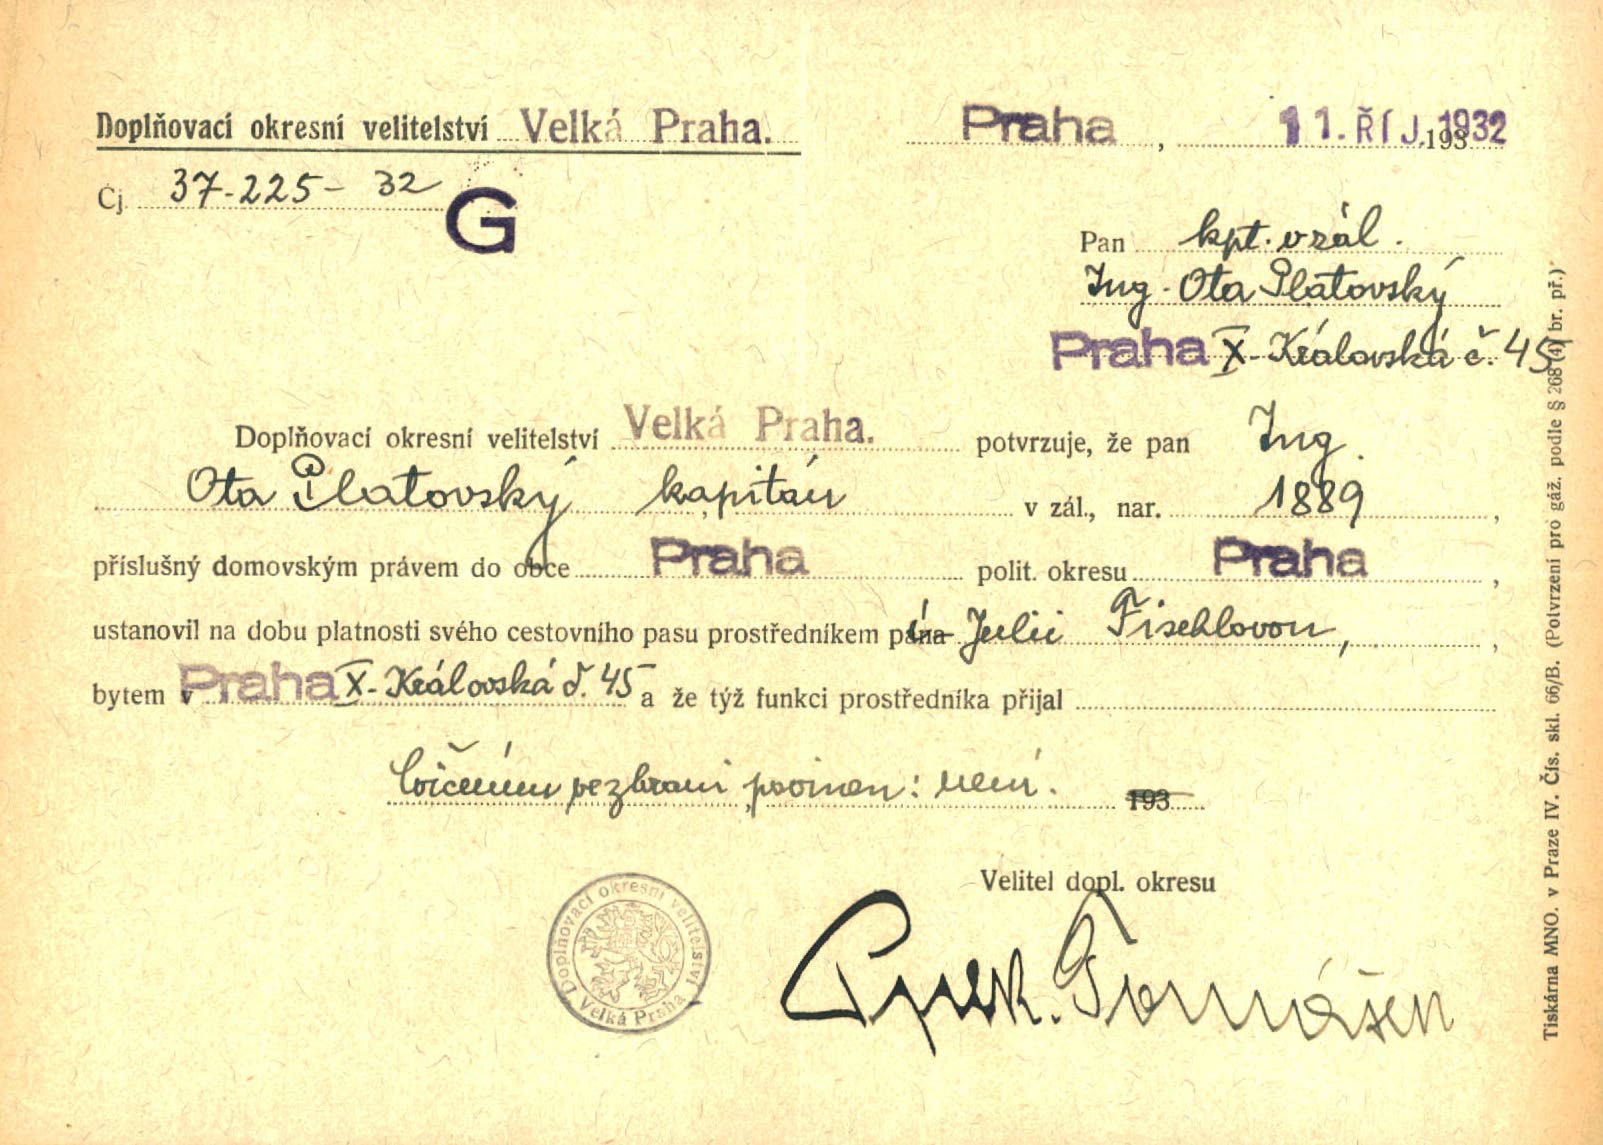 Doplňovací okresní velitelství Velká Praha.
Praha, 11. ŘÍJ. 193 1932
Čj. 37-225- 32
G
Pan kpt. v zál.
Ing. Ota Platovský
Praha X- Královská č. 45
Doplňovací okresní velitelství Velká Praha. potvrzuje, že pan Ing.
Ota Platovský kapitán v zál., nar. 1889,
příslušný domovským právem do obce Praha polit. okresu Praha,
ustanovil na dobu platnosti svého cestovního pasu prostředníkem pána Julii Fischlovou,
bytem v Praha X- Královská č. 45 a že týž funkci prostředníka přijal
Cvičením ve zbrani povinen: není. 193
Velitel dopl. okresu
Doplňovací okresní velitelství
Velká Praha
Tiskárna MNO. v Praze IV. Čís. skl. 66/B. (Potvrzení pro gáž. podle § 268 (4) br. př.)